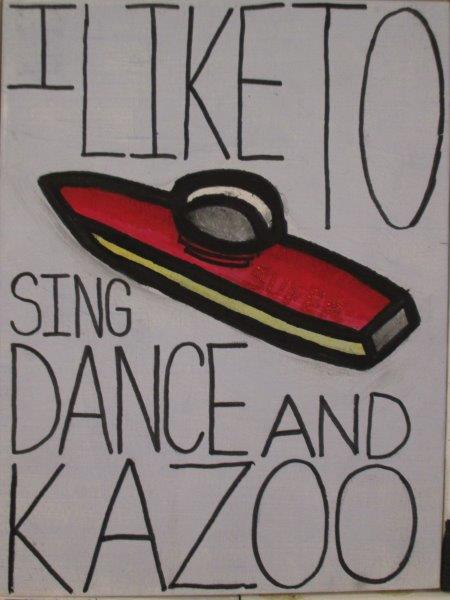 I LIKE TO
SUPER
SING
DANCE AND
KAZOO